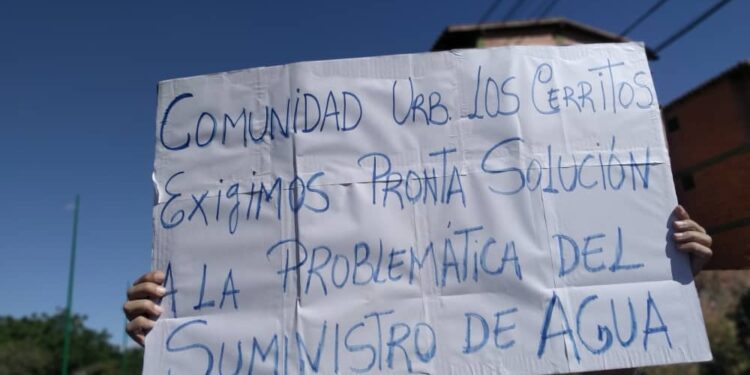 COMUNIDAD URB. LOS CERRITOS
EXIGIMOS PRONTA SOLUCIÓN
A LA PROBLEMÁTICA DEL
SUMINISTRO DE AGUA